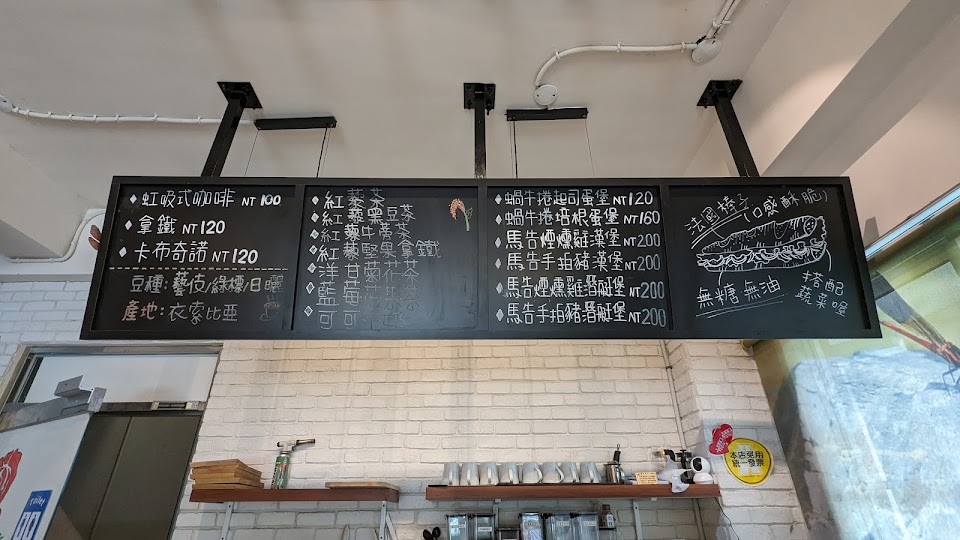 虹吸式咖啡 NT 100
拿鐵 NT 120
卡布奇諾 NT 120
豆種:藝伎/綠標/日曬
產地:衣索比亞
紅藜茶
紅藜黑豆茶
紅藜牛蒡茶
紅藜堅果拿鐵
洋甘菊花茶
藍莓花茶
可可
蝸牛捲起司蛋堡 NT 120
蝸牛捲培根蛋堡 NT 160
馬告煙燻雞漢堡 NT 200
馬告手拍豬漢堡 NT 200
馬告煙燻雞潛艇堡 NT 200
馬告手拍豬潛艇堡 NT 200
法國棒子(口感酥脆)
無糖無油
搭配
蔬菜喔
本店免用
統一發票
Toilet